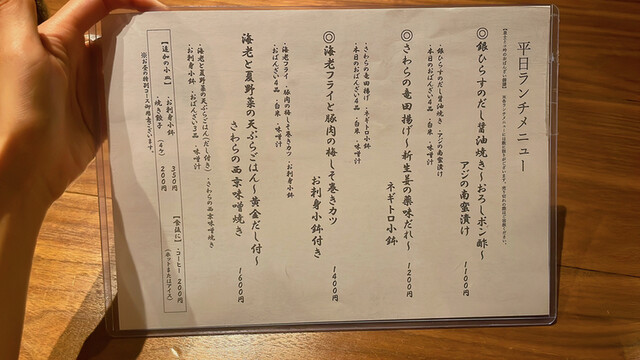 平日ランチメニュー
◎銀ひらすのだし醤油焼き〜おろしポン酢〜
アジの南蛮漬け
1100円
・銀ひらすのだし醤油焼き ・アジの南蛮漬け
・本日のおばんざい4品 ・白米 ・味噌汁
◎さわらの竜田揚げ〜新生姜の薬味だれ〜
ネギトロ小鉢
1200円
・さわらの竜田揚げ ・ネギトロ小鉢
・本日のおばんざい4品 ・白米 ・味噌汁
◎海老フライと豚肉の梅しそ巻きカツ
お刺身小鉢付き
1400円
・海老フライ ・豚肉の梅しそ巻きカツ ・お刺身小鉢
・おばんざい4品 ・白米 ・味噌汁
海老と夏野菜の天ぷらごはん〜黄金だし付〜
さわらの西京味噌焼き
1600円
・海老と夏野菜の天ぷらごはん(だし付き) ・さわらの西京味噌焼き
・お刺身小鉢 ・おばんざい3品 ・味噌汁
【追加の小皿】
・お刺身小鉢 350円
・焼き餃子(4ケ) 200円
【食後に】
・コーヒー 200円
(ホットまたはアイス)
※お昼の特別コース御用意ございます。